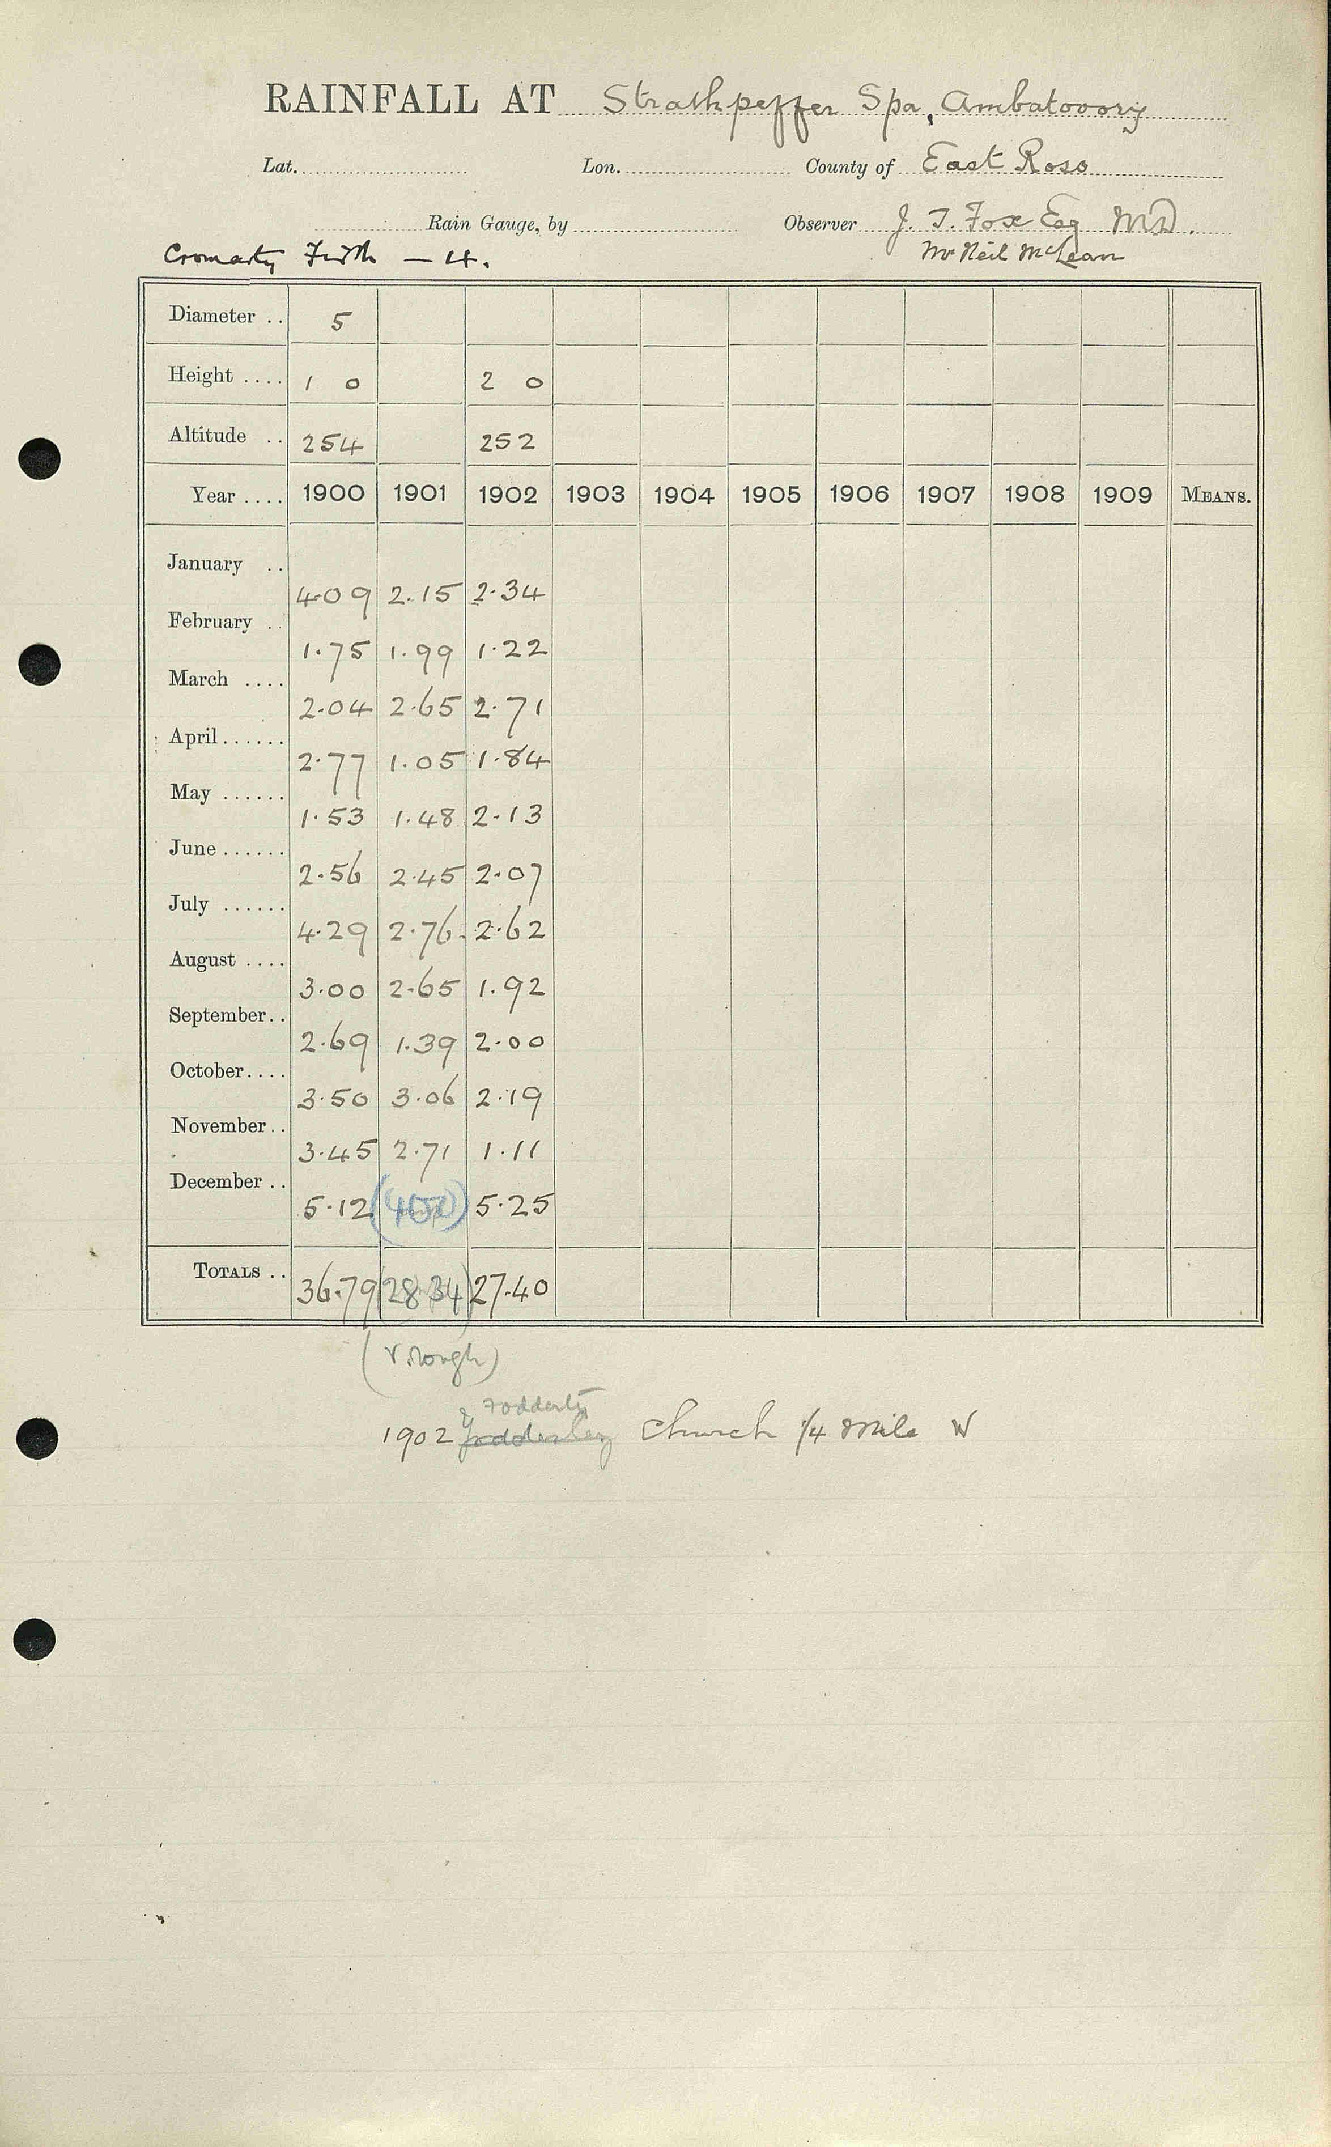 RAINFALL AT Strathpeffer Spa, Ambatovory
Lat. Lon. County of East Ross
Rain Gauge, by Observer J. T. Fox Esq M.D.
Cromarty Firth — 4. Mr Neil McLean
Diameter .. 5
Height .... 1 0 2 0
Altitude .. 254 252
Year .... 1900 1901 1902 1903 1904 1905 1906 1907 1908 1909 MEANS.
January .. 4.09 2.15 2.34
February .. 1.75 1.99 1.22
March .... 2.04 2.65 2.71
April...... 2.77 1.05 1.84
May ...... 1.53 1.48 2.13
June...... 2.56 2.45 2.07
July ...... 4.29 2.76 2.62
August .... 3.00 2.65 1.92
September.. 2.69 1.39 2.00
October.... 3.50 3.06 2.19
November.. 3.45 2.71 1.11
December .. 5.12 5.25
TOTALS .. 36.79 (28.34) 27.40
(V. Rough)
Fodderty
1902 Church 1/4 Mile W